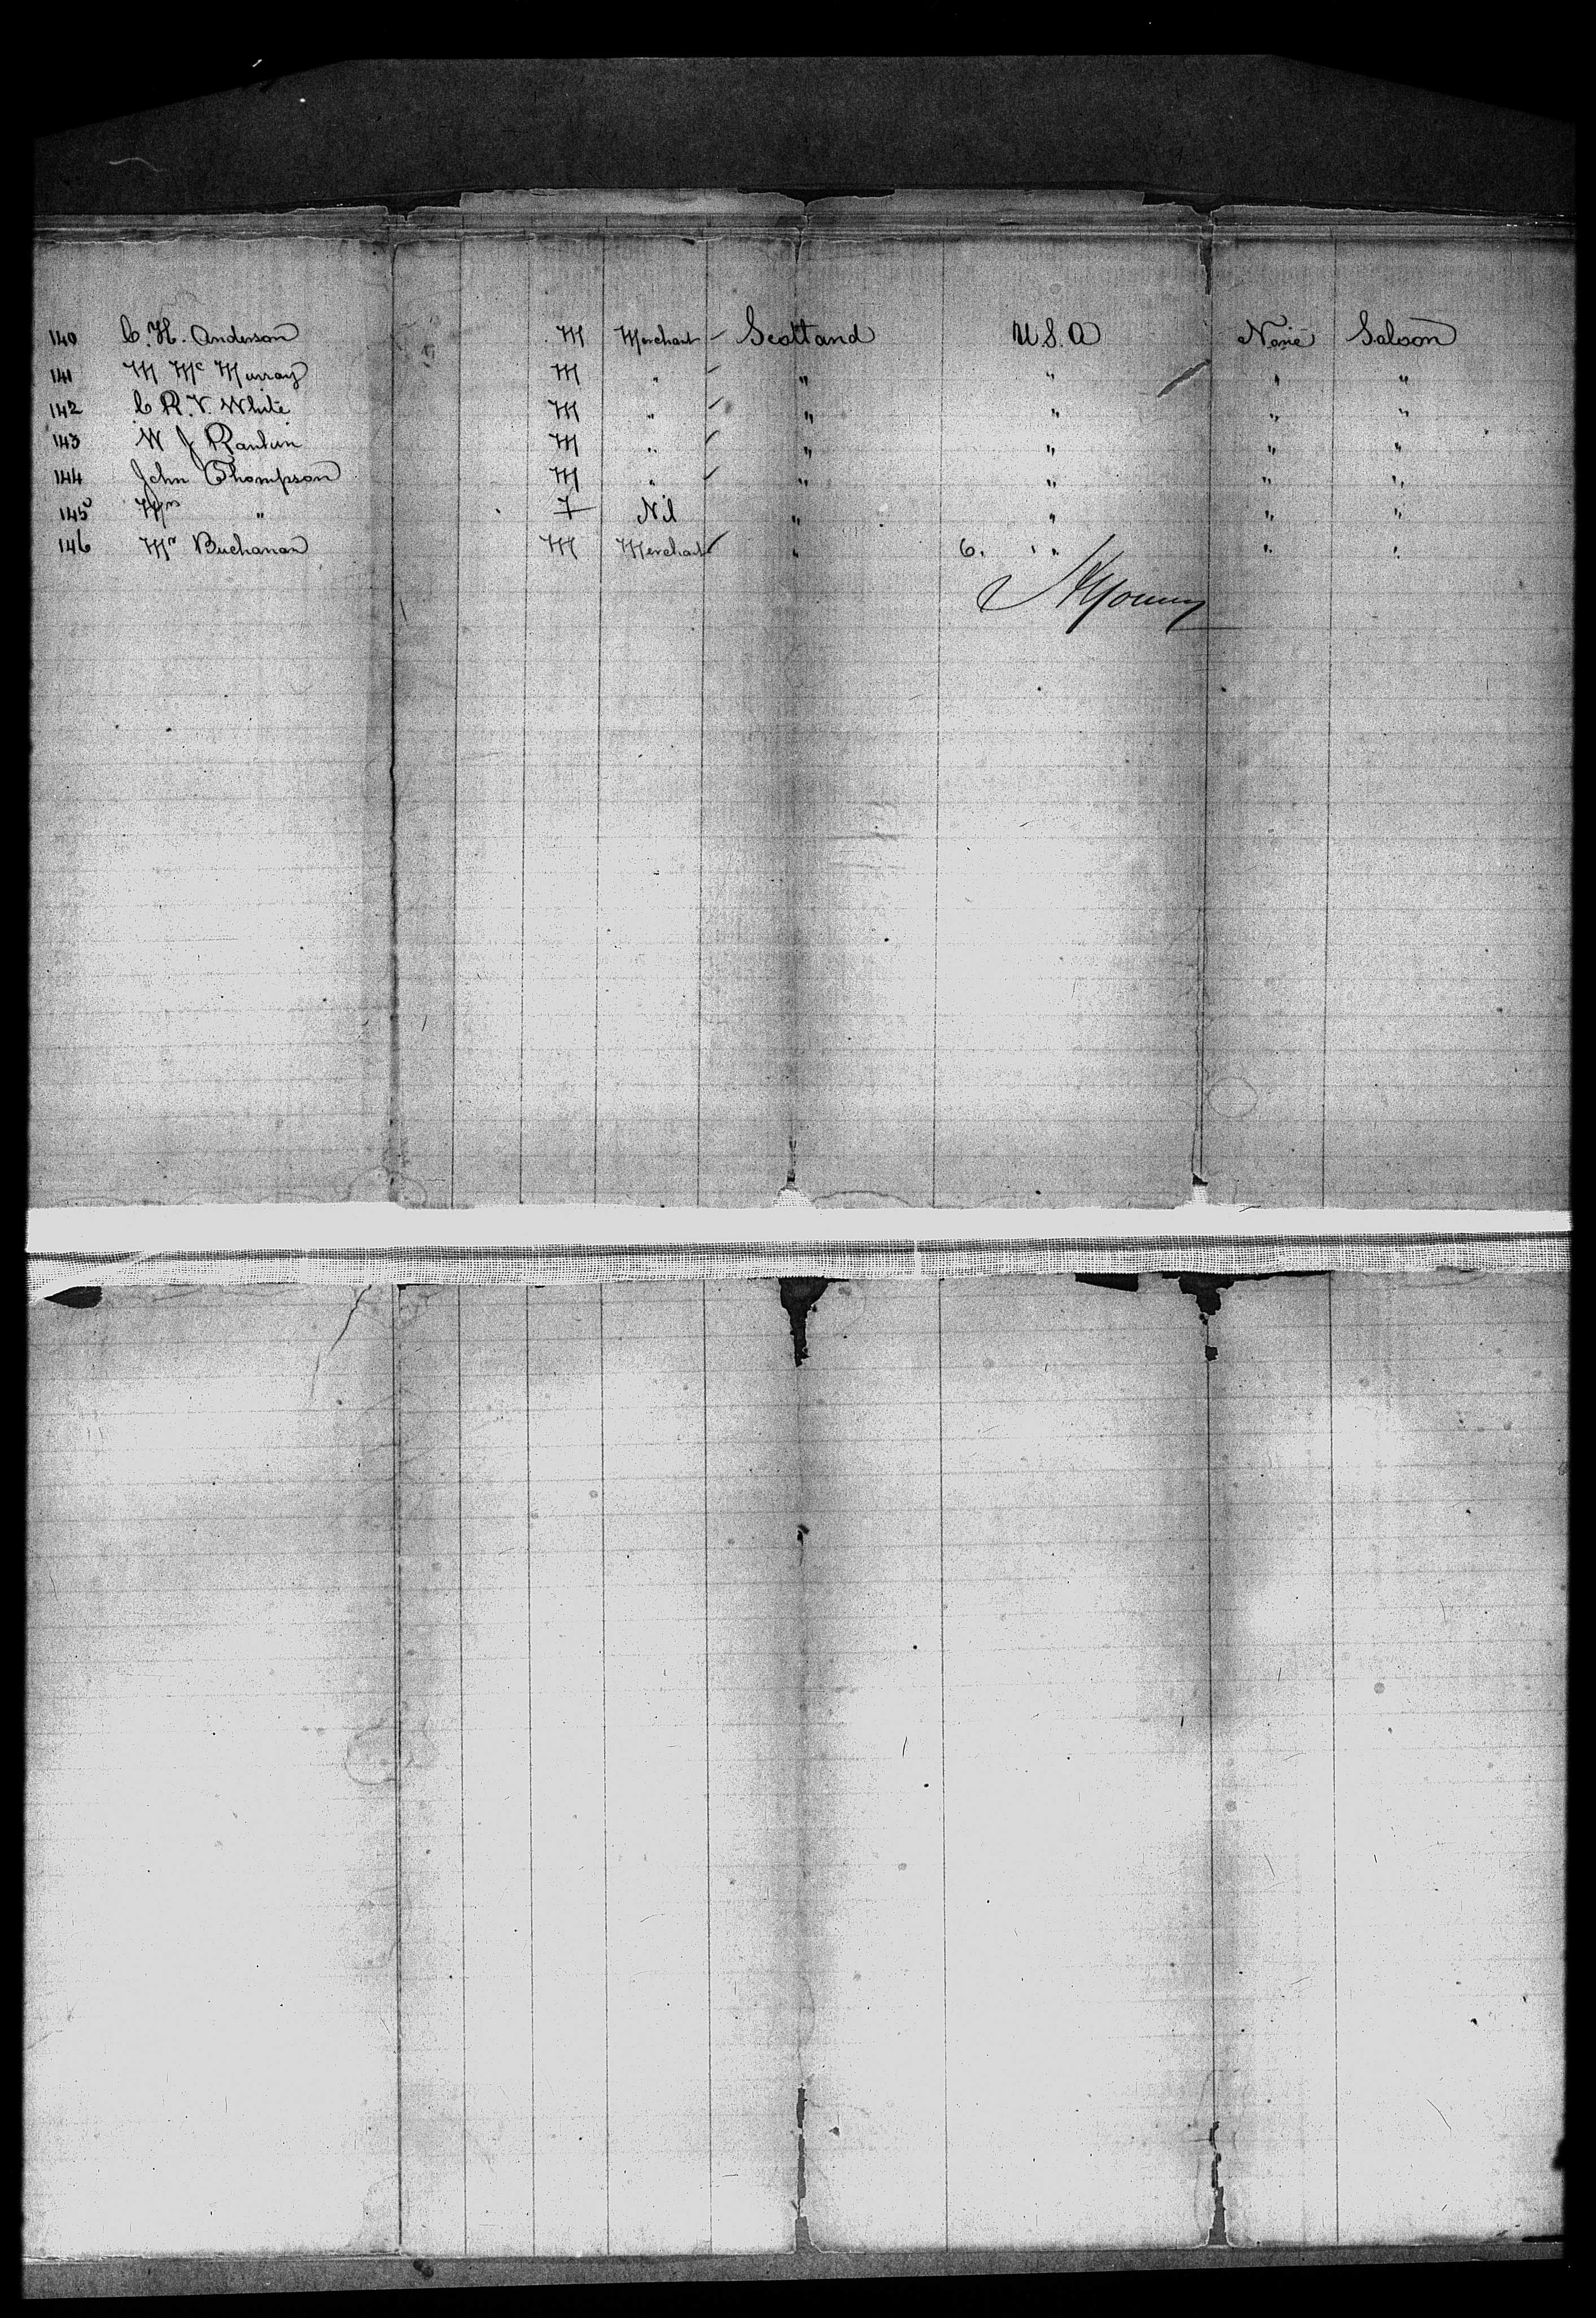 140 C. H. Anderson M Merchant Scotland U.S.A None Saloon
141 M Mc Murray M " " " " "
142 C R. V. White M " " " " "
143 W J Rankin M " " " " "
144 John Thompson M " " " " "
145 Mrs " F Nil " " " "
146 Mr Buchanan M Merchant " 6. " " "
Young